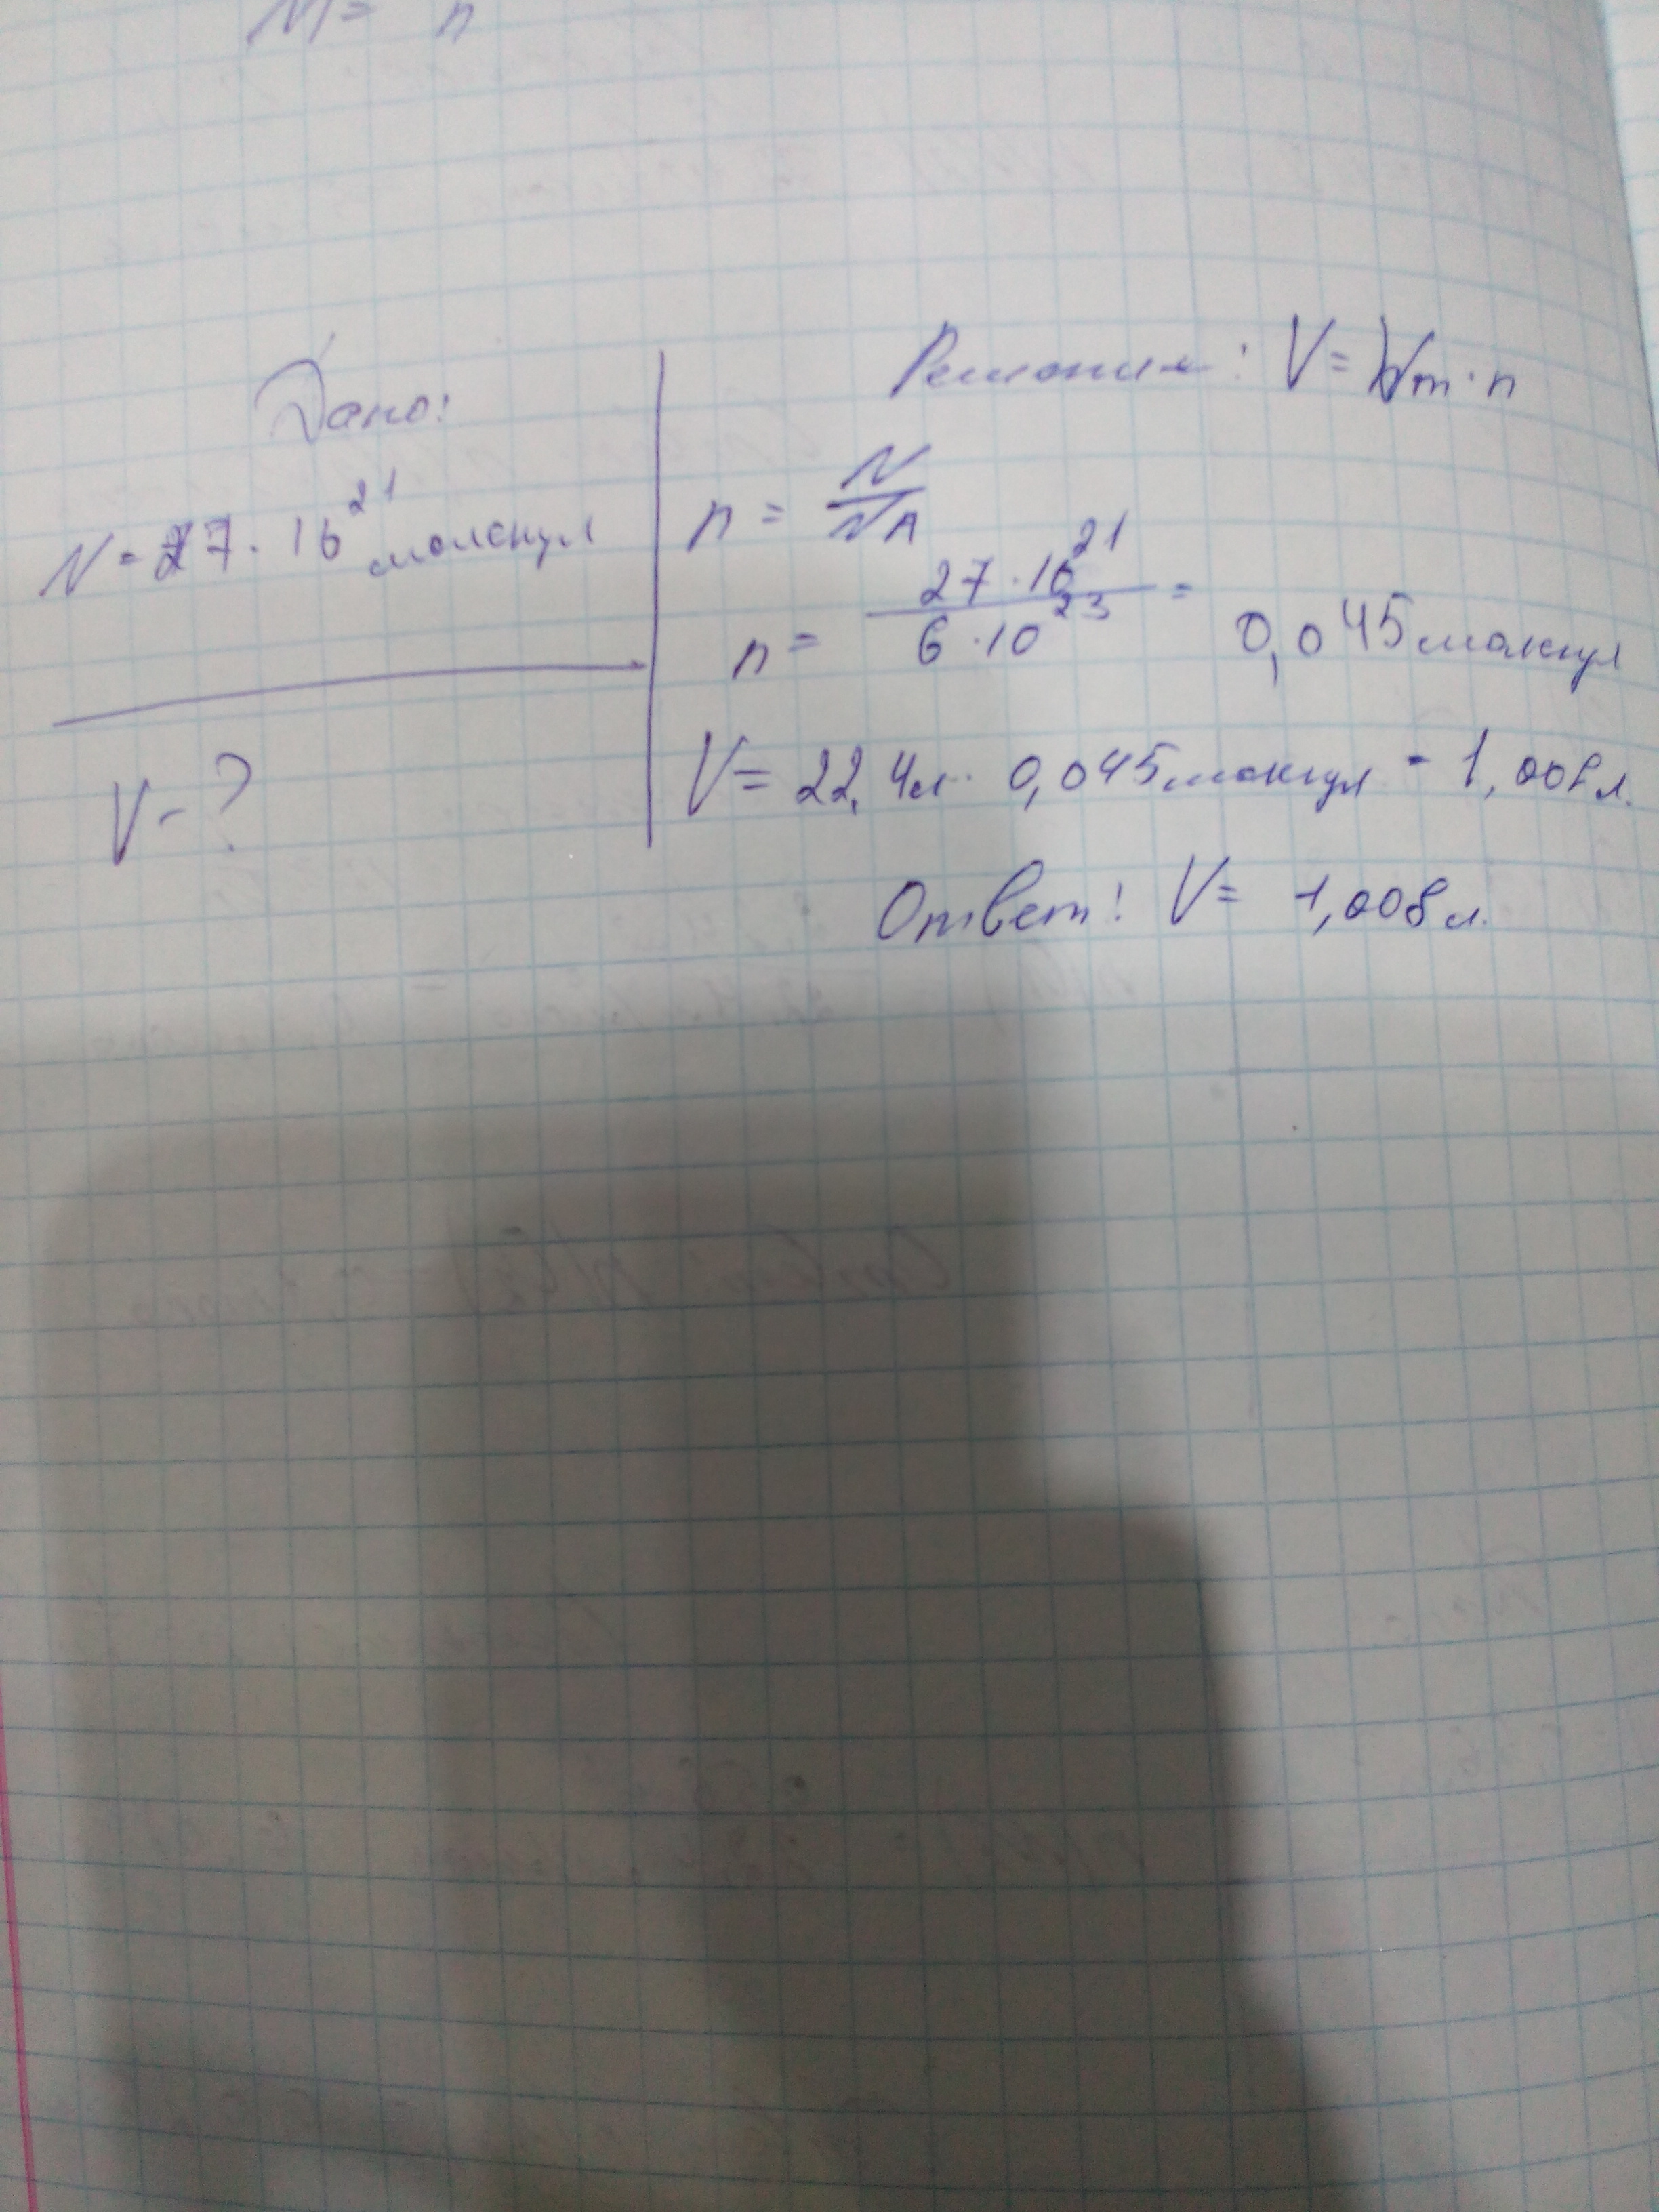 M = n
Дано:
N = 27 · 10²¹ молекул
V - ?
Решение: V = Vm · n
n = N/NA
n = 27 · 10²¹ / 6 · 10²³ = 0,045 молекул
V = 22,4 л · 0,045 молекул = 1,008 л.
Ответ: V = 1,008 л.